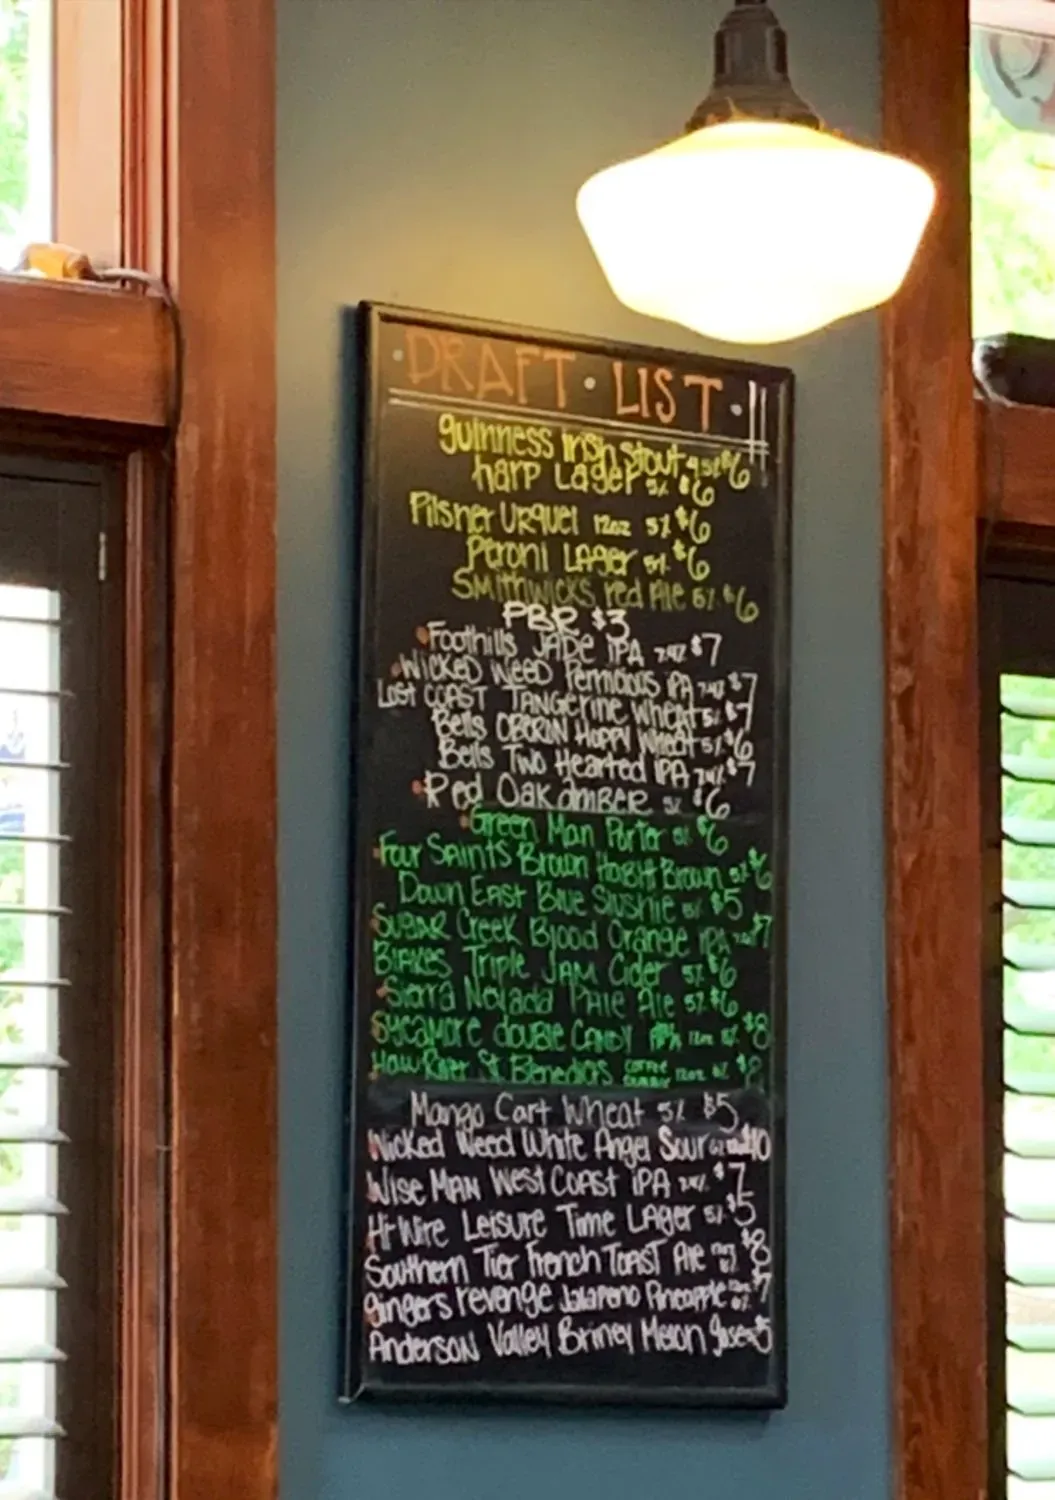 · DRAFT · LIST ·
Guinness Irish Stout $6
Harp Lager 5% $6
Pilsner Urquel 12oz 5% $6
Peroni Lager 5% $6
Smithwicks red Ale 5% $6
PBR $3
Foothills JADE IPA $7
Wicked Weed Pernicious IPA $7
Lost COAST TANGerine wheat 5% $7
Bells OBERON Hoppy Wheat 5% $6
Bells Two Hearted IPA $7
Red Oak AMBER 5% $6
Green Man Porter $6
Four Saints Brown Brown 5% $6
Down East Blue Slushie $5
Sugar Creek Blood Orange IPA $7
Blakes Triple JAM Cider 5% $6
Sierra Nevada PAle Ale 5% $6
Sycamore double CANDY 12oz $8
Haw River St. Benedicts COFFEE 12oz $8
Mango Cart Wheat 5% $5
Wicked Weed White Angel Sour $10
Wise MAN West Coast IPA $7
Hi-Wire Leisure Time LAger 5% $5
Southern Tier French TOAST Ale $8
gingers revenge Jalapeno Pineapple $7
Anderson Valley Briney Melon gose $5